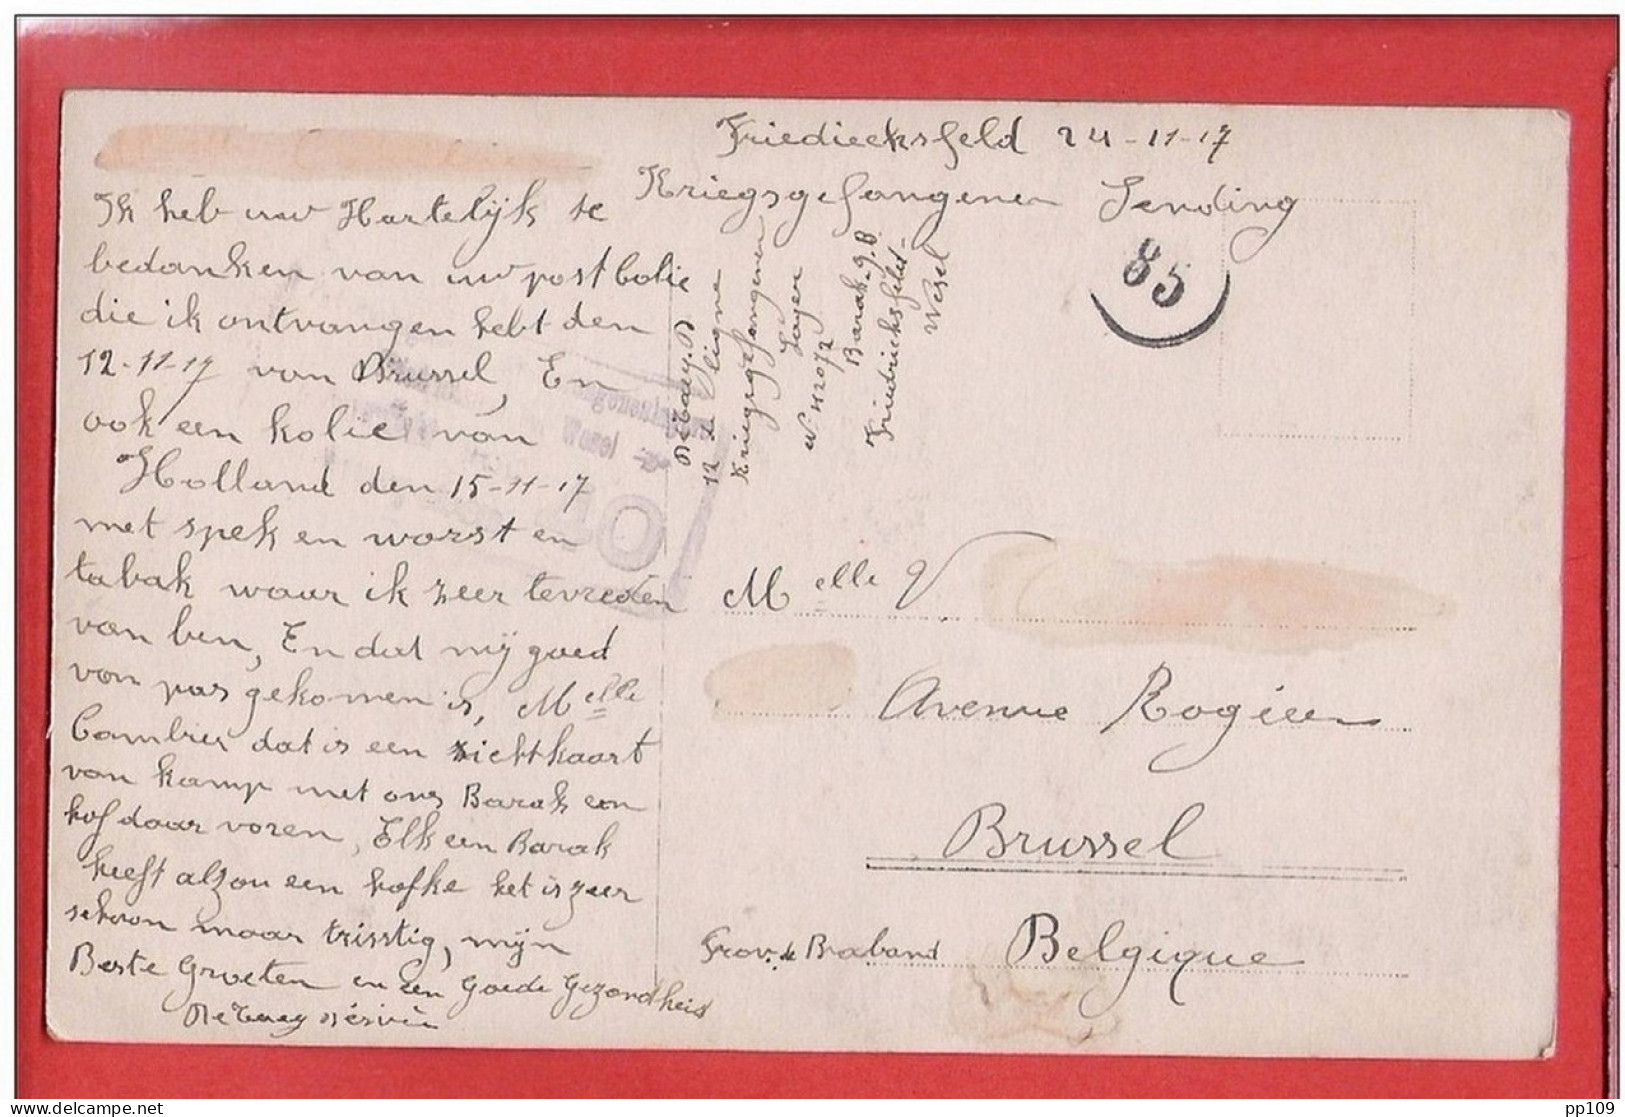 Friediecksfeld 24-11-17
Kriegsgefangenen Sending
85
Ik heb uw Hartelijk te
bedanken van uw post colie
die ik ontvangen hebt den
12-11-17 van Brussel, En
ook een kolie van
Holland den 15-11-17
met spek en worst en
tabak waar ik zeer tevreden
van ben, En dat mij goed
van pas gekomen is, Melle
Cambier dat is een zichtkaart
van kamp met ons Barak een
hof daar voren, Elk een Barak
heeft alzon een hofke het is zeer
schoon maar trisstig, mijn
Beste Groeten en een Goede Gezondheid
12 de Ligne
Kriegsgefangenen
Lager
Barak. 9. B
Friedrichsfeld-
Wesel
Melle V
Avenue Rogier
Brussel
Prov. de Braband Belgique
pp109